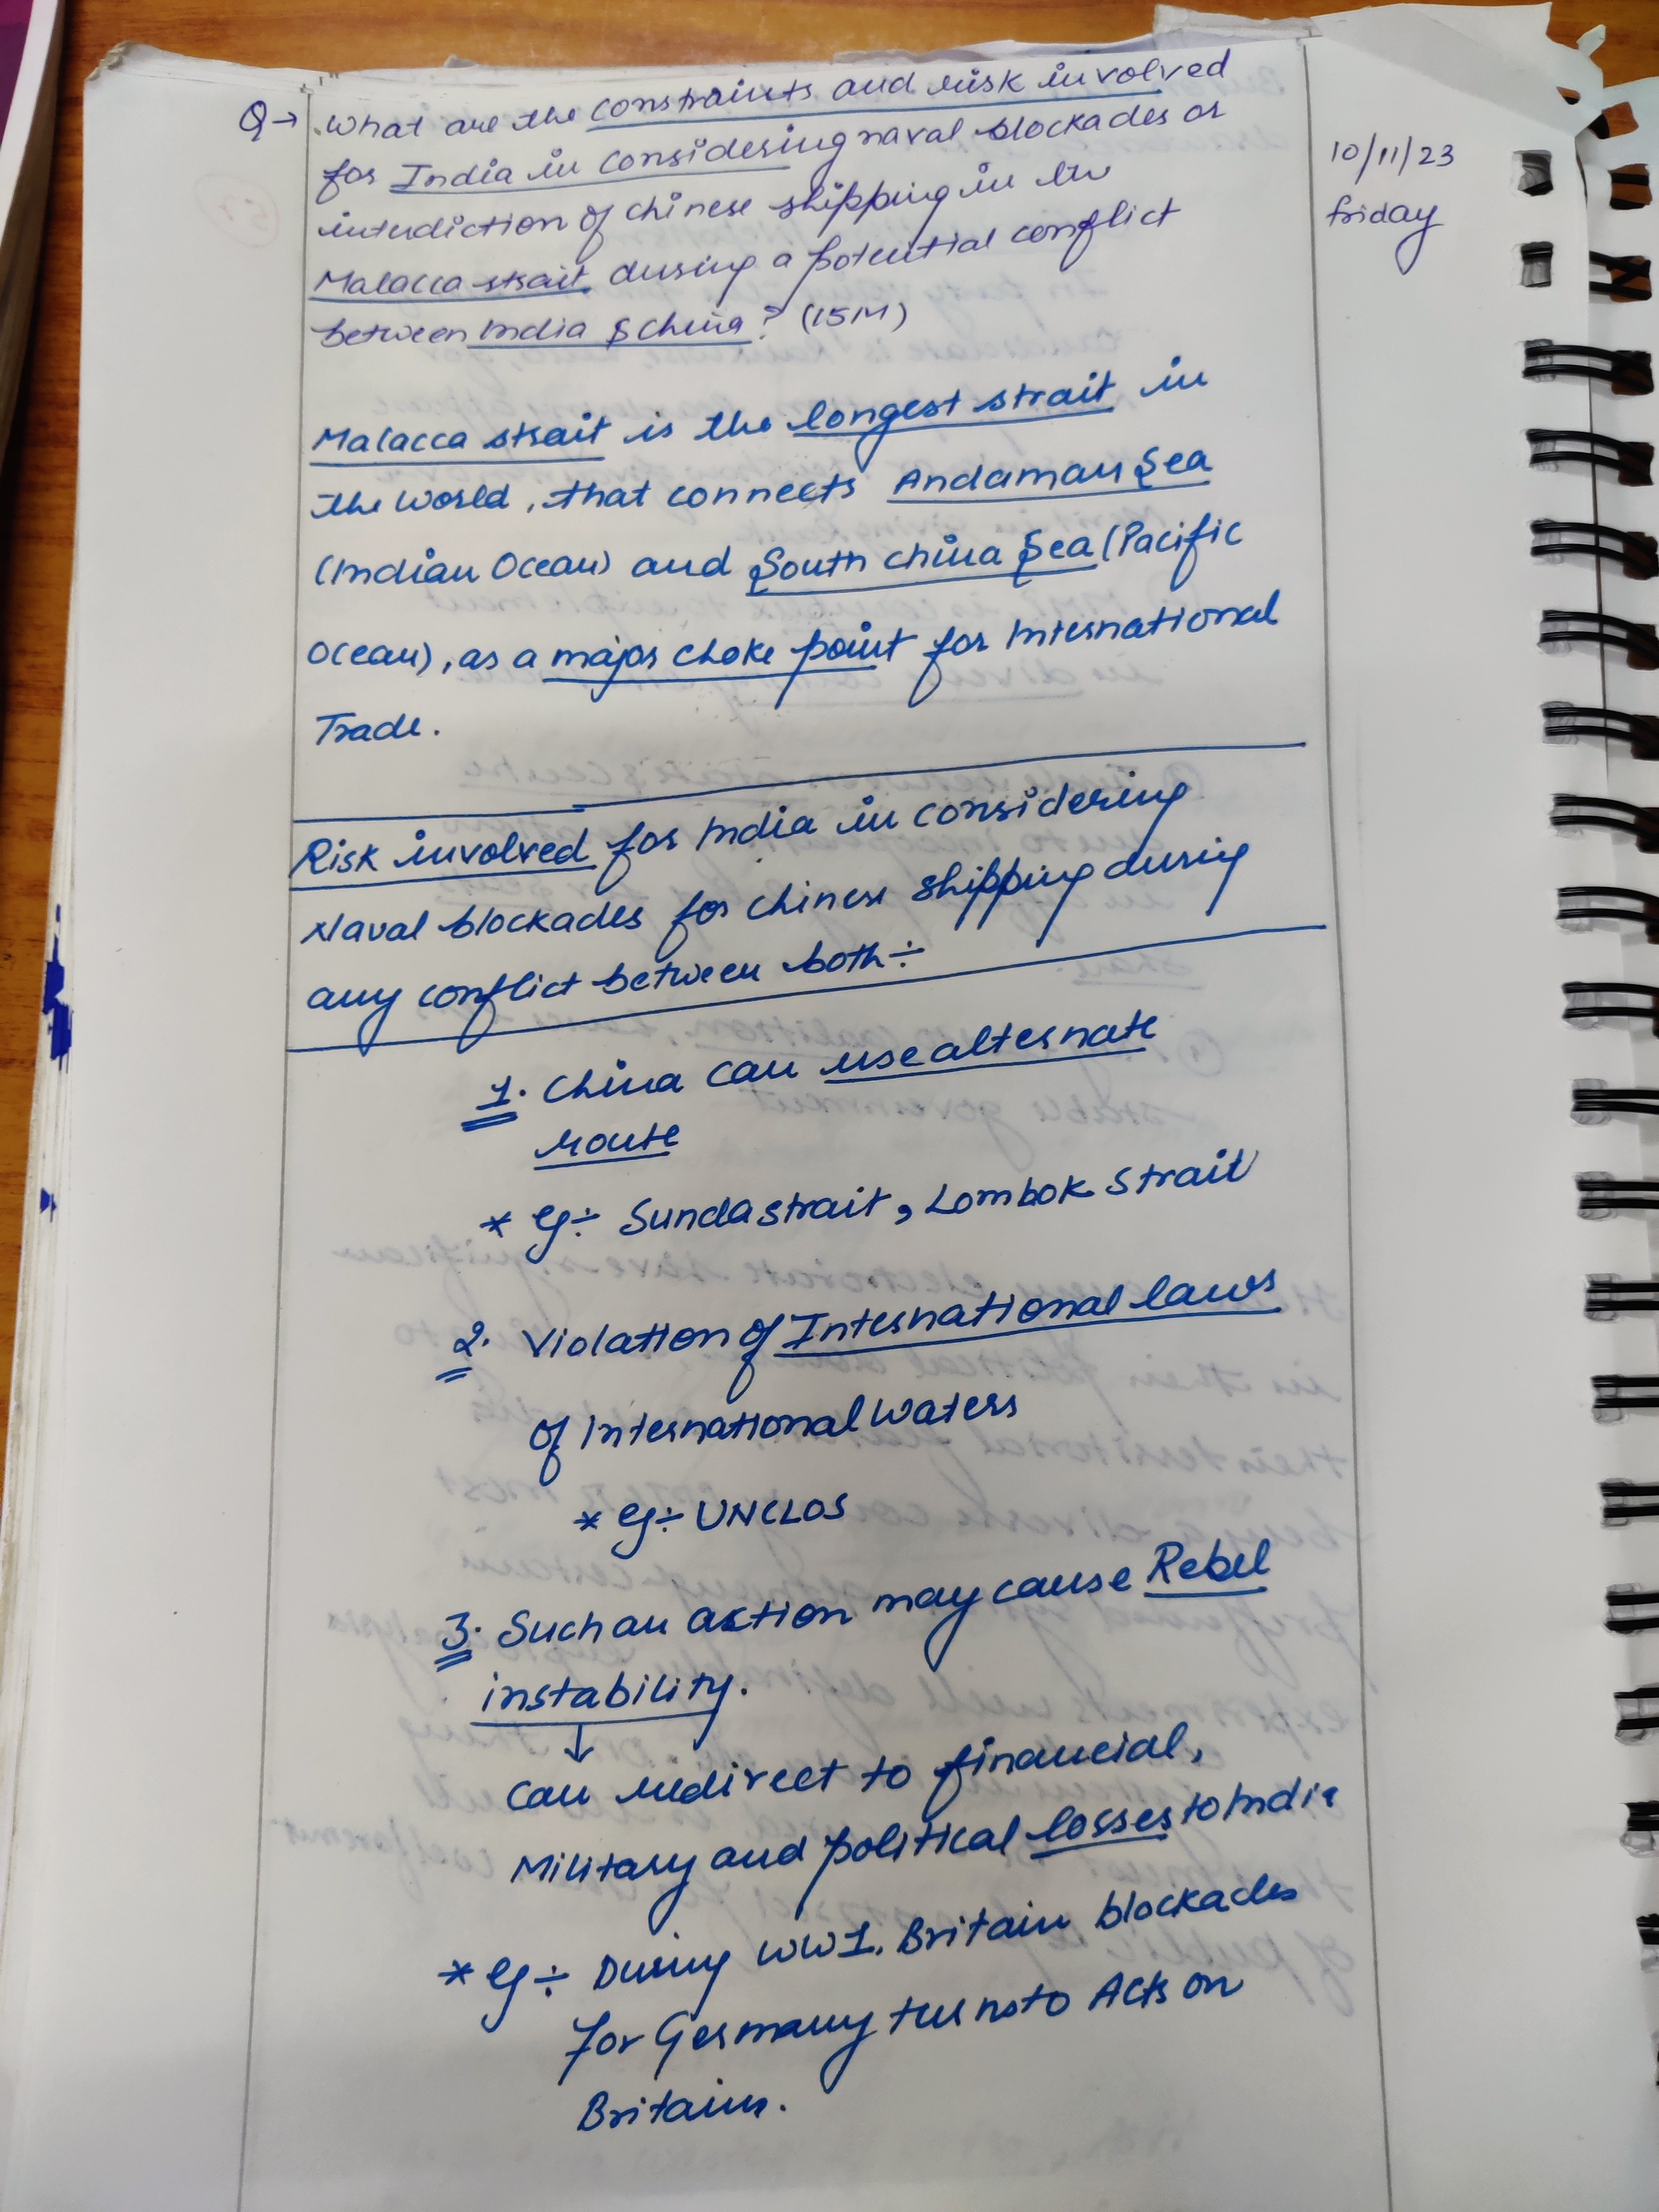 Q→ What are the constraints and risk involved
for India in considering naval blockades or
interdiction of chinese shipping in the
Malacca strait during a potential conflict
between India & China? (15M)
10/11/23
friday
Malacca strait is the longest strait in
the world, that connects Andaman Sea
(Indian Ocean) and South china Sea (Pacific
Ocean), as a major choke point for International
Trade.
Risk involved for India in considering
Naval blockades for chinese shipping during
any conflict between both÷
1. China can use alternate
route
* eg÷ Sunda strait, Lombok Strait
2. Violation of International laws
of International Waters
* eg÷ UNCLOS
3. Such an action may cause Rebel
instability.
↓
can redirect to financial,
Military and political losses to India
* eg÷ During WW1, Britain blockades
for Germany turns to Acts on
Britain.